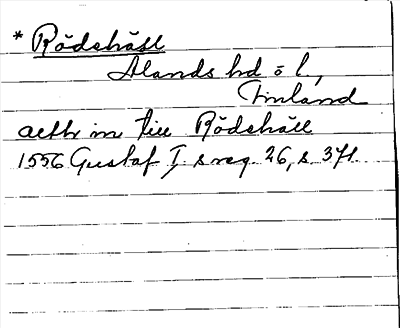 * Rödehäll
Ålands hd o l,
Finland
aethr in till Rödehäll
1556 Gustaf I:s reg. 26, s. 371.